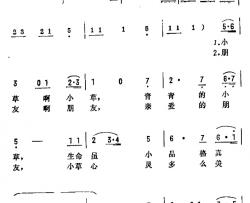 23 21 5 | 11 1 6 | 11 1 ) 5·6
1.小
2.朋
3 01 2·3 | 1 0 7 7· 6·7
草啊小草， 青青的小
友啊朋友， 亲爱的朋
5 - 11 2 3·4 5 6· 7 6·1
草，生命虽 小品格真
友，小草心 灵多么美